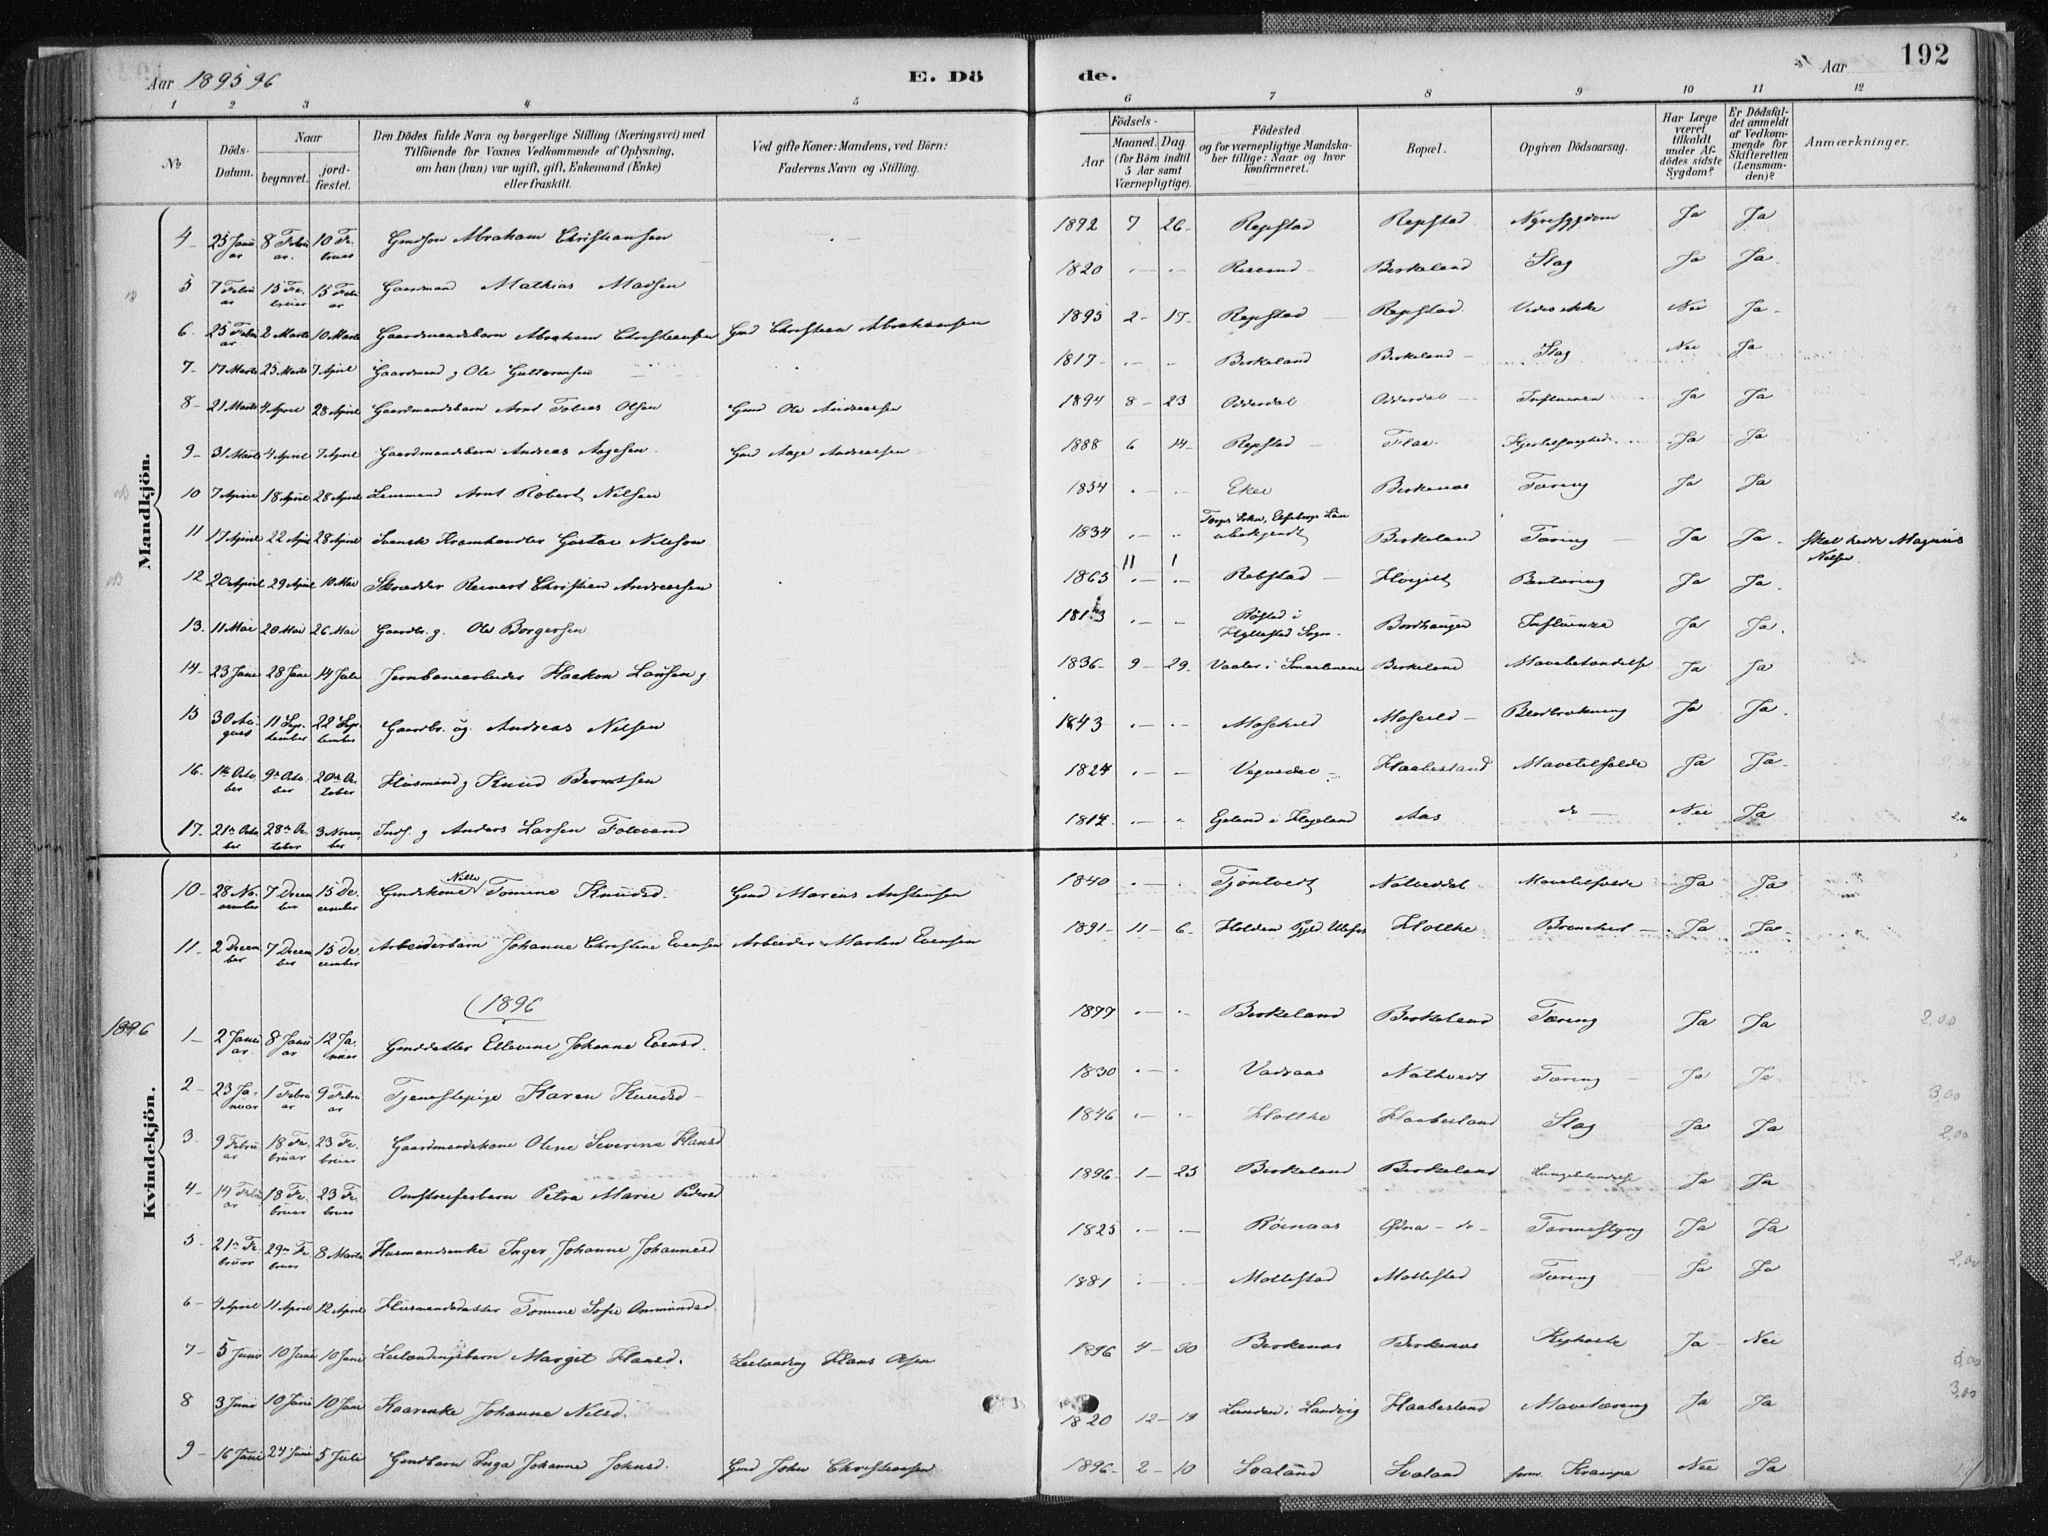 Aar 1895 96
E. Dö
de.
Aar
192
1 2 3 4 5 6 7 8 9 10 11 12
No
Döds-Datum.
Naar
begravet.
jord-fæstet.
Den Dödes fulde Navn og borgerlige Stilling (Næringsvei) med
Tilföiende for Voxnes Vedkommende af Oplysning,
om han (hun) var ugift, gift, Enkemand (Enke)
eller fraskilt.
Ved gifte Koner: Mandens, ved Börn:
Faderens Navn og Stilling.
Födsels-
Aar
Maaned. Dag.
(for Börn indtil
5 Aar samt
Værnepligtige).
Födested
og for værnepligtige Mandska-
ber tillige: Naar og hvor
konfirmeret.
Bopæl.
Opgiven Dödsaarsag.
Har Læge
været
tilkaldt
under Af-
dödes sidste
Sygdom?
Er Dödsfal-
det anmeldt
af Vedkom-
mende for
Skifteretten
(Lensman-
den)?
Anmærkninger.
Mandkjön.
4 25 Januar 8 Februar 10 Februar Gmdsøn Abraham Christiansen 1892 7 26 Repstad Repstad Nyresygdom Ja Ja
5 7 Februar 15 Februar 15 Februar Gaardmand Mathias Madsen 1820 Birkeland Slag Ja Ja
6 25 Februar 2 Marts 10 Marts Gaardmandsbarn Abraham Christiansen Gmd Christian Abrahamsen 1895 2 17 Repstad Repstad Vides ikke Nei Ja
7 17 Marts 25 Marts 7 April Gaardmand g Ole Guttormsen 1817 Birkeland Birkeland Slag Nei Ja
8 21 Marts 4 April 28 April Gaardmandsbarn Arnt Tobias Olsen Gmd Ole Andreassen 1894 8 23 Odderdal Odderdal Influenza Ja Ja
9 31 Marts 4 April 7 April Gaardmandsbarn Andreas Aagesen Gmd Aage Andreassen 1888 6 14 Repstad Flaa Ja Ja
10 7 April 18 April 28 April Lensmand Arnt Robert Nilsen 1854 Eker Birkenæs Tæring Ja Ja
11 17 April 22 April 28 April Svensk Kramhandler Gustav Nilsson 1834 Torps Sokn, Elfsborgs Län ubekjendt Birkeland Tæring Ja Ja skal hedde Magnus Nilsen
12 20 April 29 April 10 Mai Skrædder Reinert Christian Andreassen 1865 11 1 Rebstad Bentæring Ja Ja
13 11 Mai 20 Mai 26 Mai Gaardbr. g. Ole Borgersen 1813 Røstad i Hyllestad Sogn Bordhaugen Influenza Ja Ja
14 23 Juni 28 Juni 14 Juli Jernbanearbeider Haakon Larsen g 1836 9 29 Vaaler i Smaalenene Birkeland Mavebetændelse Ja Ja
15 30 August 11 September 22 September Gaardbr. ug. Andreas Nilsen 1843 Mosevld Blodbrækning Ja Ja
16 1ste October 9de October 20de October Husmand g Knud Berntsen 1824 Vegusdal Haabesland Mavetilfælde Ja Ja
17 21de October 28de October 3 November Inds. g Anders Larsen Tolvsand 1817 Eeland i Hægeland Aas do Nei Ja
Kvindekjön.
10 28 November 7 December 15 December Gmdskone Nille Tomine Knudsd. Gmd Marius Austensen 1840 Tjøntvedt Natveddal Mavetilfælde Ja Ja
11 2 December 7 December 15 December Arbeiderbarn Johanne Christine Evensen Arbeider Morten Evensen 1891 11 6 Holden Pgjld Ulefos Holtke Bronchit Ja Ja
1896
1896
1 2 Januar 8 Januar 12 Januar Gmddatter Ellevine Johanne Evensd. 1877 Birkeland Birkeland Tæring Ja Ja 2,00
2 23 Januar 1 Februar 9 Februar Tjenestepige Karen Knudsd 1830 Vadsaas Natvedt Tæring Ja Ja 3,00
3 9 Februar 18 Februar 23 Februar Gaardmandskone Olene Severine Hansd 1846 Holtke Haabesland Slag Ja Ja 2,00
4 14 Februar 18 Februar 23 Februar Omstreiferbarn Petra Marie Pedersd 1896 1 25 Birkeland Birkeland Lungebetændelse Ja Ja
5 21de Februar 29de Februar 8 Marts Husmandsenke Inger Johanne Johannesd 1825 Røinaas Ødna do Tarmeslyng Ja Ja 2,00
6 4 April 11 April 12 April Husmandsdatter Tomine Sofie Omundsd. 1881 Mollestad Mollestad Tæring Ja Ja
7 5 Juni 10 Juni 10 Juni Leilændingsbarn Margit Hansd. Leilænding Hans Olsen 1896 4 30 Birkenæs Birkenæs Kighoste Ja Nei 5,00
8 3 Juni 10 Juni 10 Juni Kaarenke Johanne Nilsd. 1820 12 19 Lunden i Landvig Haabesland Mavetæring Ja Ja 3,00
9 16 Juni 24 Juni 5 Juli Gmdbarn Inga Johanne Johnsd. Gmd John Christiansen 1896 2 10 Svaland Svaland form. Krampe Nei Ja